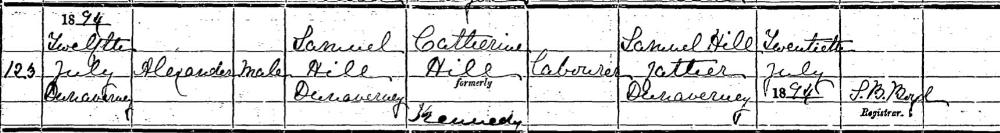 1894
Twelfth Samuel Catherine Samuel Hill Twentieth
123 July Alexander Male Hill Hill Labourer Father July
Dunaverney Dunaverney formerly Dunaverney 1894 S. B. Boyd
Kennedy Registrar.